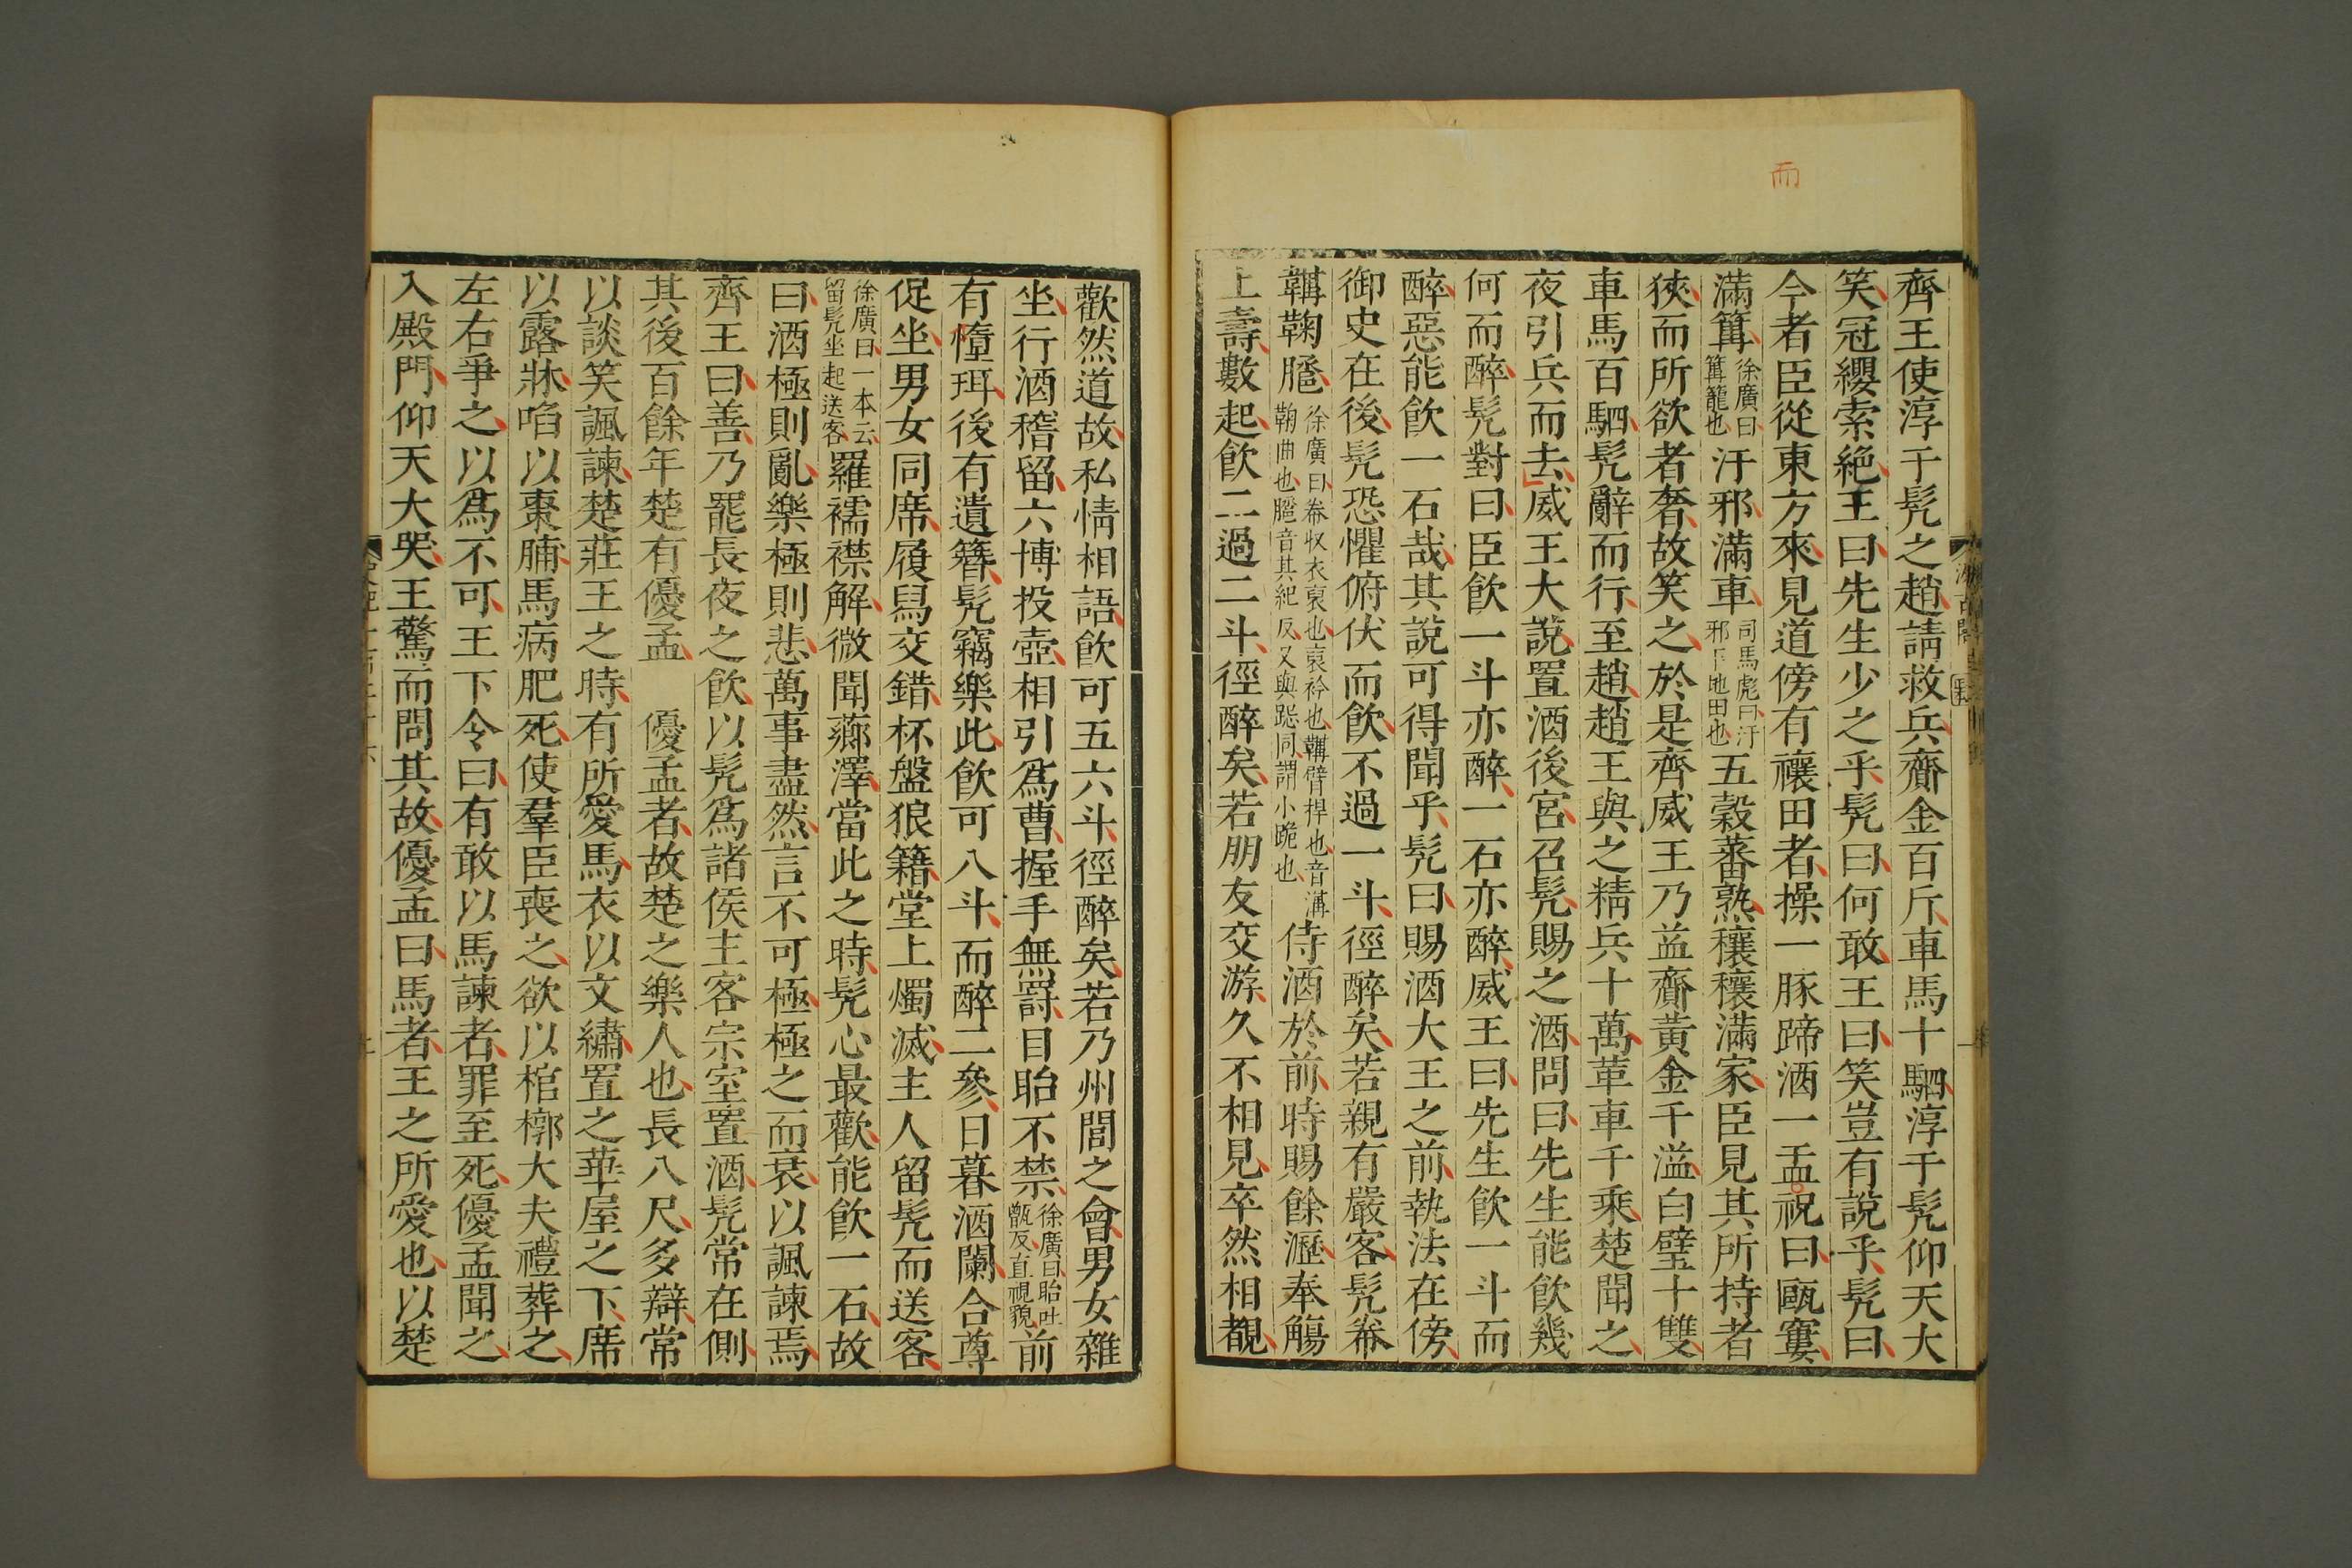 而
齊王使淳于髡之趙請救兵齎金百斤車馬十駟淳于髡仰天大
笑冠纓索絶王曰先生少之乎髡曰何敢王曰笑豈有說乎髡曰
今者臣從東方來見道傍有禳田者操一豚蹄酒一盂祝曰甌窶
滿篝徐廣曰篝籠也汙邪滿車司馬彪曰汙邪下地田也五穀蕃熟穰穰滿家臣見其所持者
狹而所欲者奢故笑之於是齊威王乃益齎黃金千溢白璧十雙
車馬百駟髡辭而行至趙趙王與之精兵十萬革車千乘楚聞之
夜引兵而去威王大說置酒後宮召髡賜之酒問曰先生能飮幾
何而醉髡對曰臣飮一斗亦醉一石亦醉威王曰先生飮一斗而
醉惡能飮一石哉其說可得聞乎髡曰賜酒大王之前執法在傍
御史在後髡恐懼俯伏而飮不過一斗徑醉矣若親有嚴客髡帣
韝鞠𦜕徐廣曰帣収衣袌也袌衿也韝臂捍也音溝鞠曲也𦜕音其紀反又與跽同謂小跪也侍酒於前時賜餘瀝奉觴
上壽數起飮二過二斗徑醉矣若朋友交游久不相見卒然相覩
歡然道故私情相語飮可五六斗徑醉矣若乃州閭之會男女雜
坐行酒稽留六博投壺相引爲曹握手無罸目眙不禁徐廣曰眙吐甑反直視貌前
有墮珥後有遺簪髡竊樂此飮可八斗而醉二參日暮酒闌合尊
促坐男女同席履舄交錯杯盤狼籍堂上燭滅主人留髡而送客
徐廣曰一本云留髡坐起送客羅襦襟解微聞薌澤當此之時髡心最歡能飮一石故
曰酒極則亂樂極則悲萬事盡然言不可極極之而衰以諷諫焉
齊王曰善乃罷長夜之飮以髡爲諸侯主客宗室置酒髡常在側
其後百餘年楚有優孟　優孟者故楚之樂人也長八尺多辯常
以談笑諷諫楚莊王之時有所愛馬衣以文繡置之華屋之下席
以露牀啗以棗脯馬病肥死使羣臣喪之欲以棺槨大夫禮葬之
左右爭之以爲不可王下令曰有敢以馬諫者罪至死優孟聞之
入殿門仰天大哭王驚而問其故優孟曰馬者王之所愛也以楚